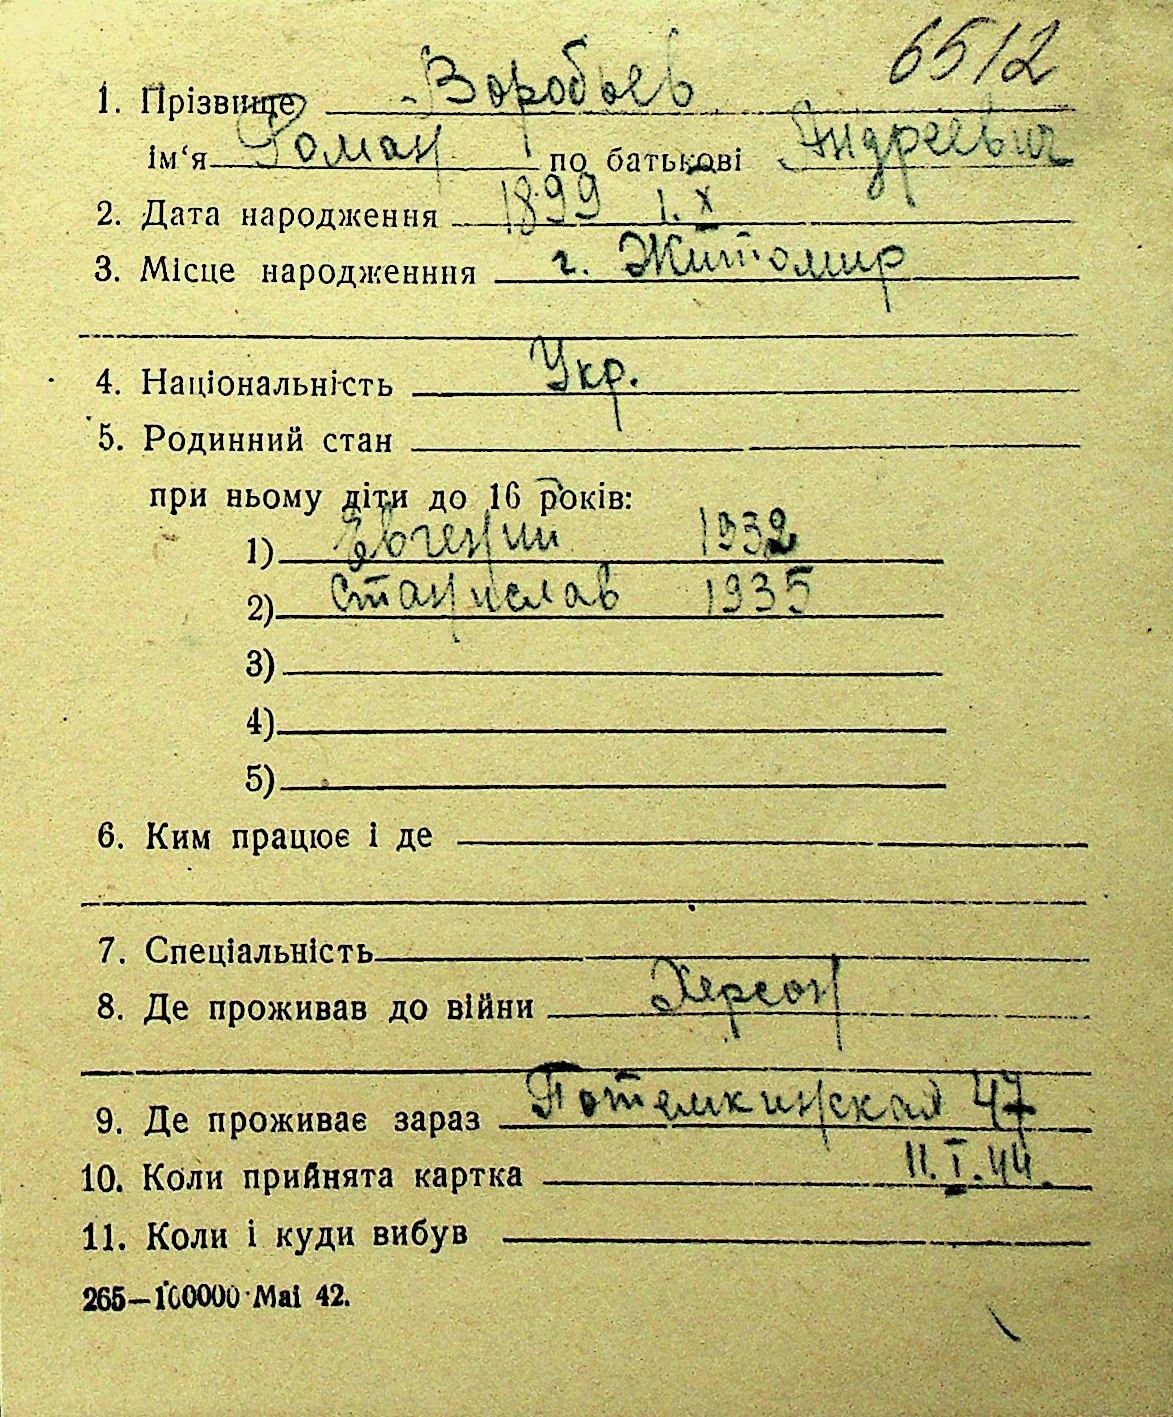 6512
1. Прізвище Воробьев
ім‘я Роман по батькові Андреевич
2. Дата народження 1899 1. X
3. Місце народженння г. Житомир
4. Національність Укр.
5. Родинний стан
при ньому діти до 16 років:
1) Евгений 1932
2) Станислав 1935
3)
4)
5)
6. Ким працює і де
7. Спеціальність
8. Де проживав до війни Херсон
9. Де проживає зараз Потемкинская 47
10. Коли прийнята картка 11. I. 44.
11. Коли і куди вибув
265—100000 Mai 42.